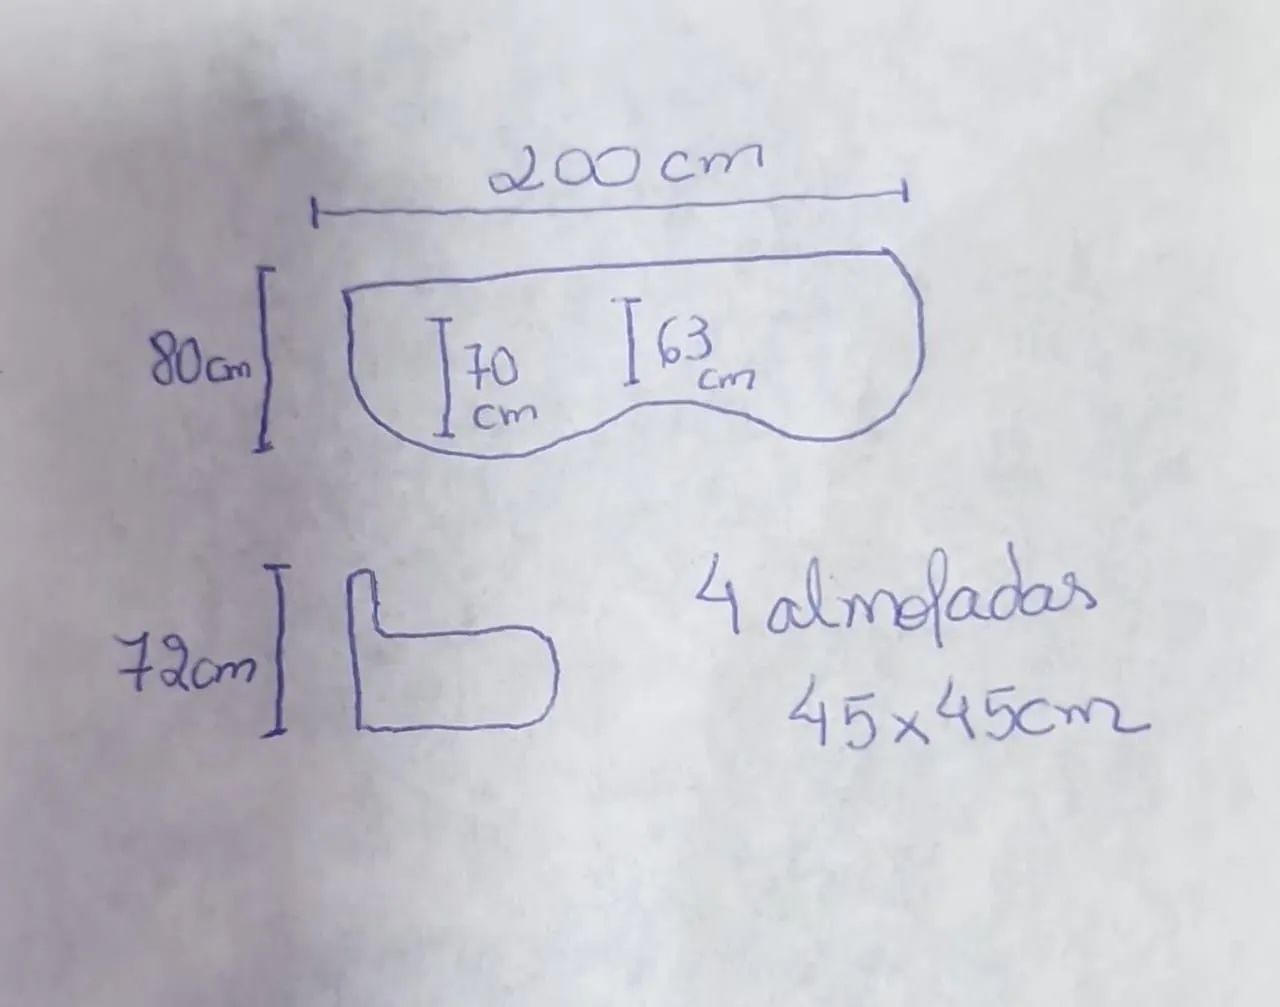 200 cm
80cm
70
cm
63
cm
72cm
4 almofadas
45x45cm